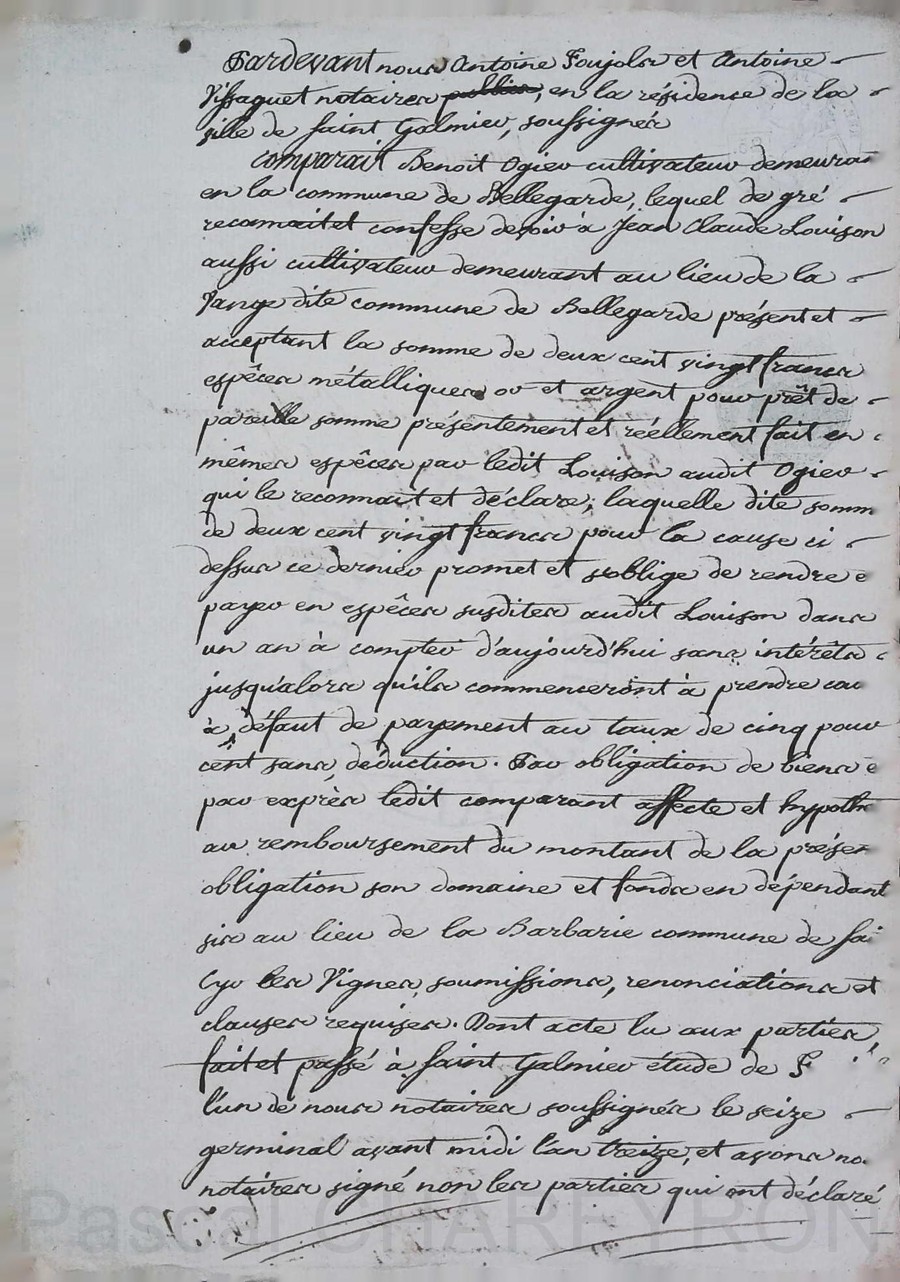 Pardevant nous Antoine Foujols et Antoine
Vissaguet notaires publics, en la résidence de la
ville de Saint Galmier, soussignés
comparait Benoit Ogier cultivateur demeuran
en la commune de Bellegarde, lequel de gré
reconnait et confesse devoir à Jean Claude Louison
aussi cultivateur demeurant au lieu de la
Vange dite commune de Bellegarde présent et
acceptant la somme de deux cent vingt francs
espêces métalliques or et argent pour prêt de
pareille somme présentement et réellement fait en
mêmes espêces par ledit Louison audit Ogier
qui le reconnait et déclare; laquelle dite somm
de deux cent vingt francs pour la cause ci
dessus ce dernier promet et s'oblige de rendre e
payer en espêces susdites audit Louison dans
un an à compter d'aujourd'hui sans intérêts
jusqu'alors qu'ils commenceront à prendre cou
à défaut de payement au taux de cinq pour
cent sans déduction. Par obligation de biens e
par exprès ledit comparant affecte et hypoth
au remboursement du montant de la présen
obligation son domaine et fonds en dépendant
sis au lieu de la Barbarie commune de Sai
Cyr les Vignes, soumissions, renonciations et
clauses requises. Dont acte lu aux parties
fait et passé à Saint Galmier étude de F
l'un de nous notaires soussignés le seize
germinal avant midi l'an treize, et avons no
notaires signé non les parties qui ont déclaré
Pascal CHAREYRON